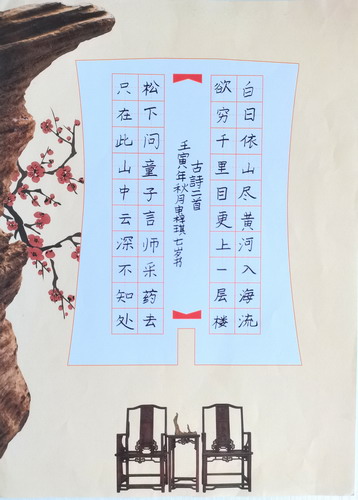 白日依山尽黄河入海流
欲穷千里目更上一层楼
古詩二首
壬寅年秋月申梓琪七岁书
松下问童子言师采药去
只在此山中云深不知处